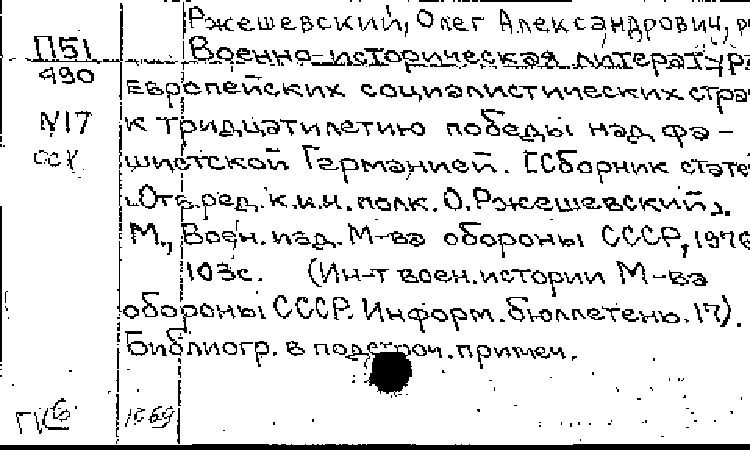 Ржешевский, Олег Александрович, р
П51
490
Военно-историческая литература
европейских социалистических стра
N17
к тридцатилетию победы над фа-
шистской Германией. [Сборник стате
Отв. ред. к.и.н. полк. О.Ржешевский].
М., Воен. изд. М-ва обороны СССР, 1976
103с. (Ин-т воен. истории М-ва
обороны СССР. Информ. бюллетень. 17).
Библиогр. в подстроч. примеч.